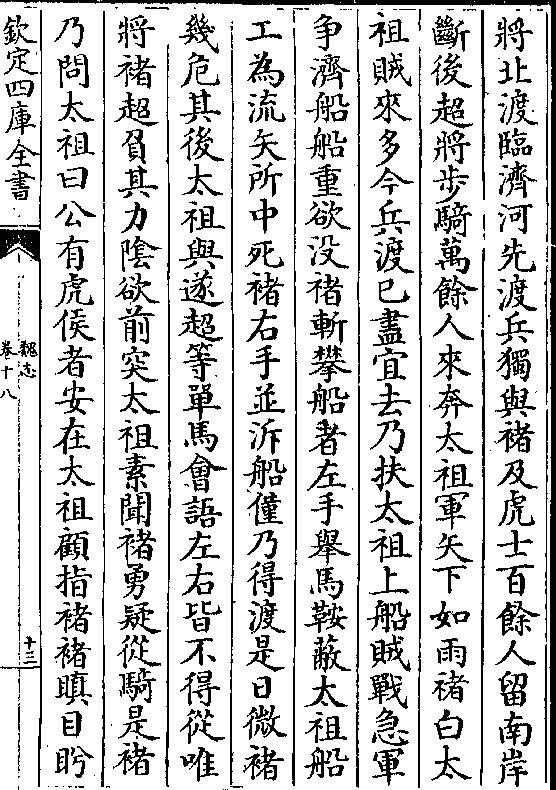 將北渡臨濟河先渡兵獨與褚及虎士百餘人留南岸
斷後超將步騎萬餘人來奔太祖軍矢下如雨褚白太
祖賊來多今兵渡已盡宜去乃扶太祖上船賊戰急軍
争濟船船重欲没褚斬攀船者左手舉馬鞍蔽太祖船
工為流矢所中死褚右手並泝船僅乃得渡是日微褚
幾危其後太祖與遂超等單馬會語左右皆不得從唯
將褚超負其力陰欲前突太祖素聞褚勇疑從騎是褚
乃問太祖曰公有虎侯者安在太祖顧指褚褚瞋目盻
欽定四庫全書
魏志
卷十八
十三